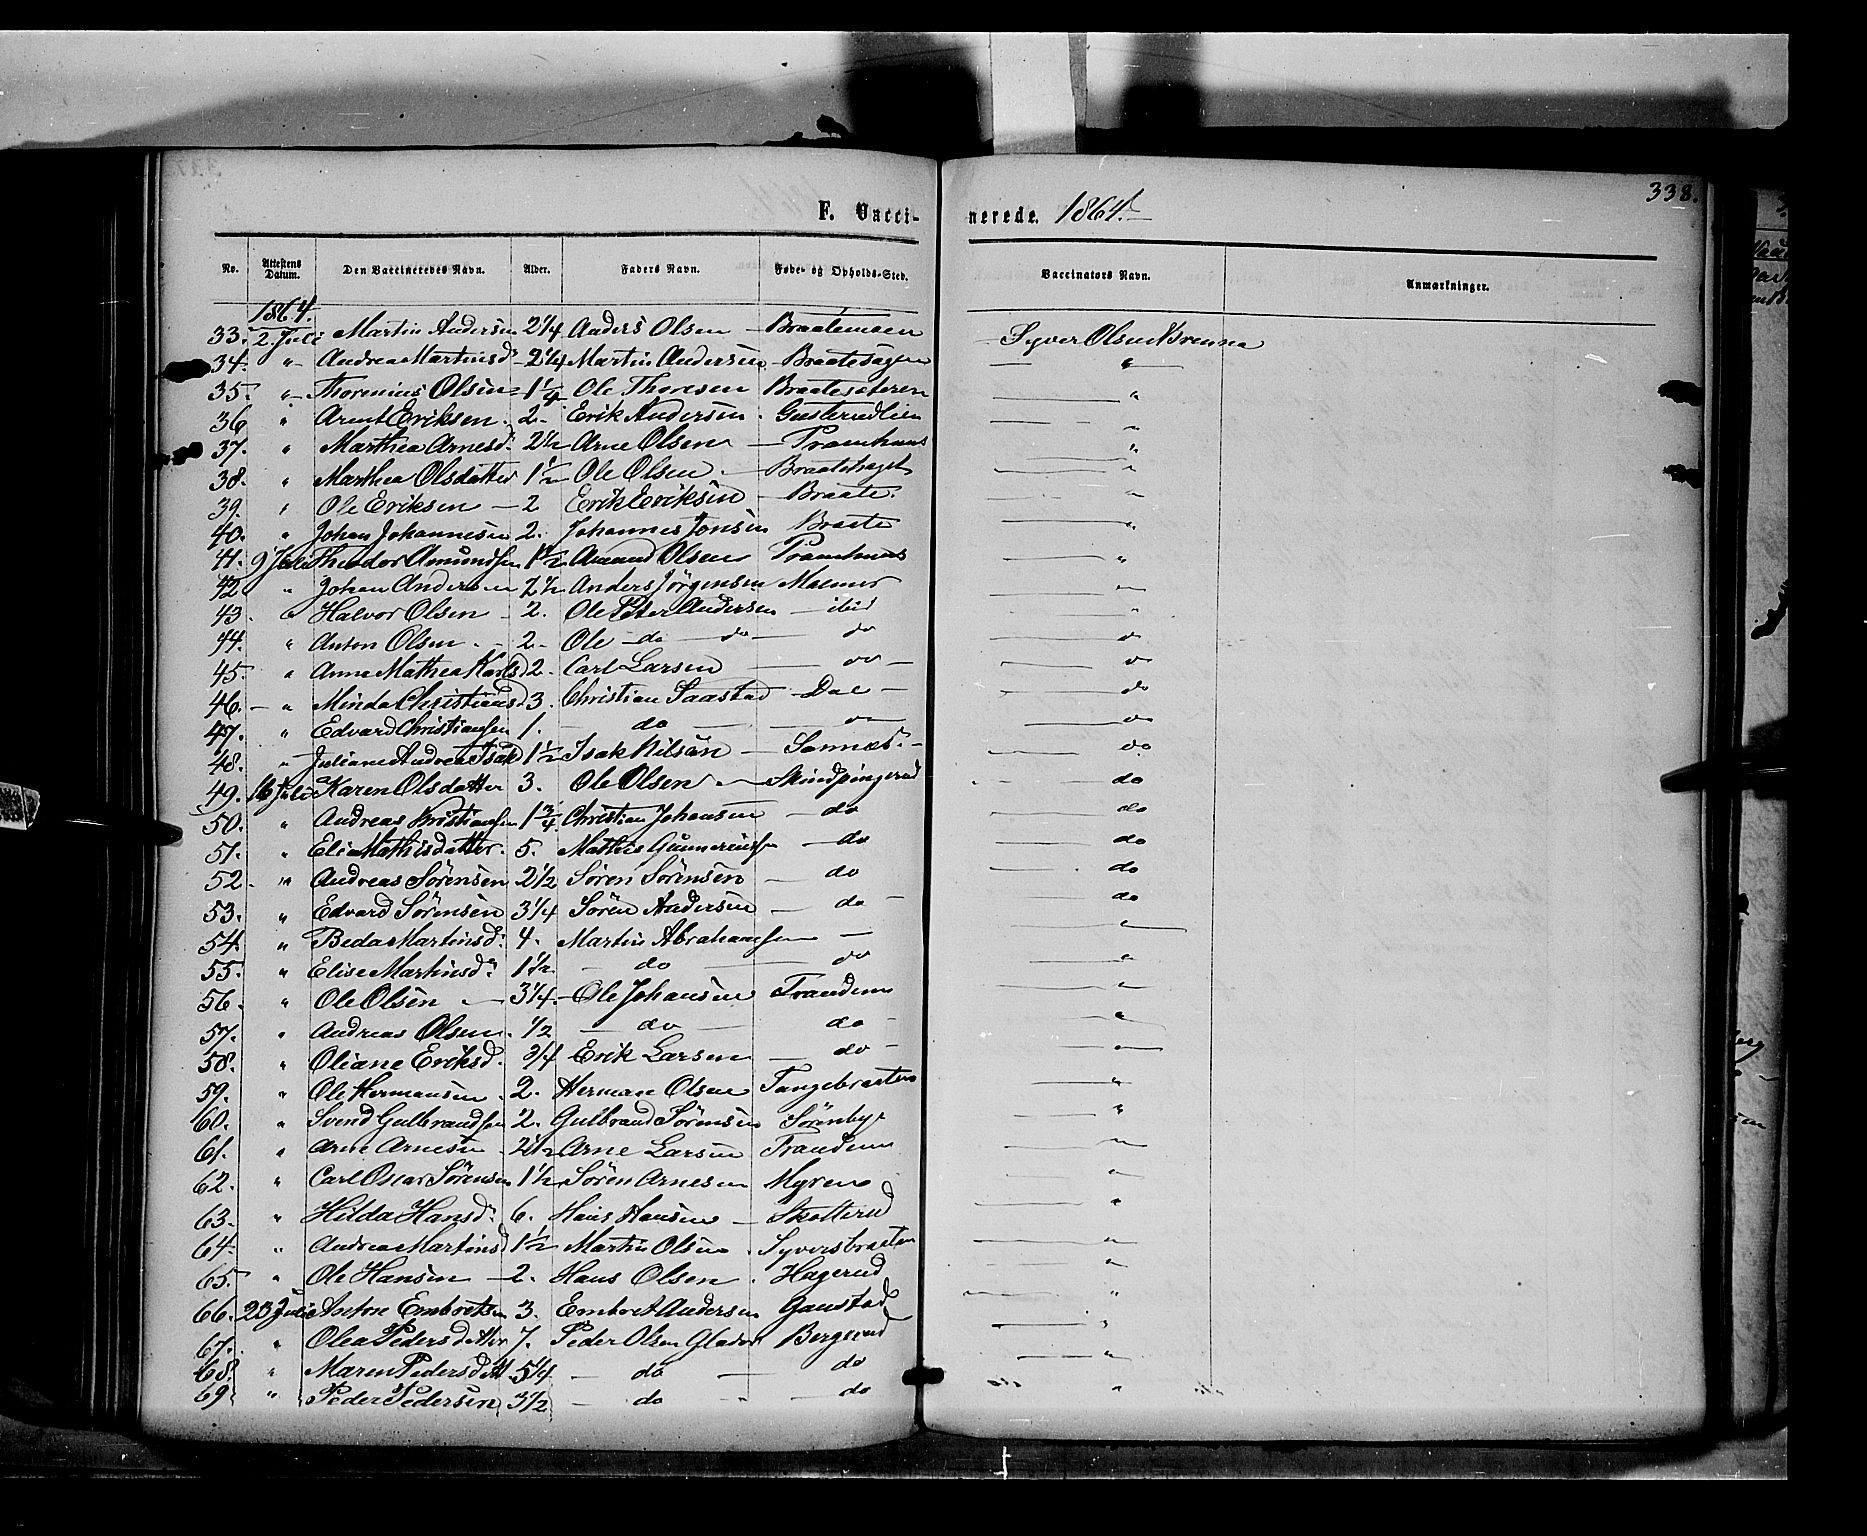 338.
F. Vacci- nerede. 1864
No. Attestens Datum. Den Vaccineredes Navn. Alder. Faders Navn. Føde- og Opholds-Sted. Vaccinators Navn. Anmærkninger.
1864.
33. 2. Juli Martin Andersen 2 1/4 Anders Olsen - Braatemoen Syver Olsen Brenna
34. " Andrea Martinsd: 2 1/4 Martin Andersen Braatesagen "
35. " Thorenius Olsen 1 1/4 Ole Thoresen Braatesæteren "
36 " Arent Eriksen. 2. Erik Andersen. Gusterudlien "
37. " Marthea Arnesd: 2 1/2 Arne Olsen - Pramhuus "
38. " Marthea Olsdatter 1 1/2 Ole Olsen. - Braatehaget "
39. " Ole Eriksen - 2 Erik Eriksen - Braate. "
40. " Johan Johannesen 2. Johannes Jonsen Braate "
41. 9 Juli Theodor Amundsen 1 1/2 Amund Olsen Pramhuus "
42 " Johan Andersen 2 1/2 Anders Jörgensen Malmer "
43. " Halvor Olsen - 2. Ole Peter Andersen - ibid "
44. " Anton Olsen. - 2. Ole - do - do - do do
45. " Anne Mathea Karlsd 2. Carl Larsen - do - do
46. " Minda Christiansd 3. Christian Saastad - Dal - do
47. " Edvard Christiansen 1. - do - do do
48. " Juliane Andrea Isakd 1 1/2 Isak Nilsen - do
49. 16 Juli Karen Olsdatter 3. Ole Olsen - Skindpingrud do
50. " Andreas Kristiansen 1 3/4 Christian Johansen - do do
51. " Eli Mathisdatter. 5. Mathis Gunneriusen - do do
52. " Andreas Sörensen 2 1/2 Sören Sörensen - do do
53. " Edvard Sörensen 3 1/4 Sören Andersen - do - do
54. " Beda Martinsd: 4. Martin Abrahamsen - "
55. " Elise Martinsd: 1 1/2. - do - do "
56. " Ole Olsen - 3 1/4. - Ole Johansen Trandem "
57. " Andreas Olsen. 1/2 - do - do - "
58. " Oliane Eriksd. 3/4 Erik Larsen - do - "
59. " Ole Hermansen. 2. Herman Olsen Tangebraaten "
60. " Svend Gulbrandsen 2. Gulbrand Sörensen Sörenbye "
61. " Arne Arnesen 2 1/2 Arne Larsen Trandem "
62. " Carl Oscar Sörensen 1 1/2 Sören Arnesen Myren "
63. " Hilda Hansd: 6. Hans Hansen - Skotterud "
64. " Andrea Martinsd 1 1/2 Martin Olsen. Syversbraaten "
65. " Ole Hansen - 2. Hans Olsen. Hagerud "
66. 23 Juli Anton Embretsen 3. Embret Andersen Gaustad "
67. " Olea Pedersdatter 7. Peder Olsen Bergerud "
68. " Maren Pedersdatt 5 1/4 - do - do "
69. " Peder Pedersen 3 1/2 - do " - do "